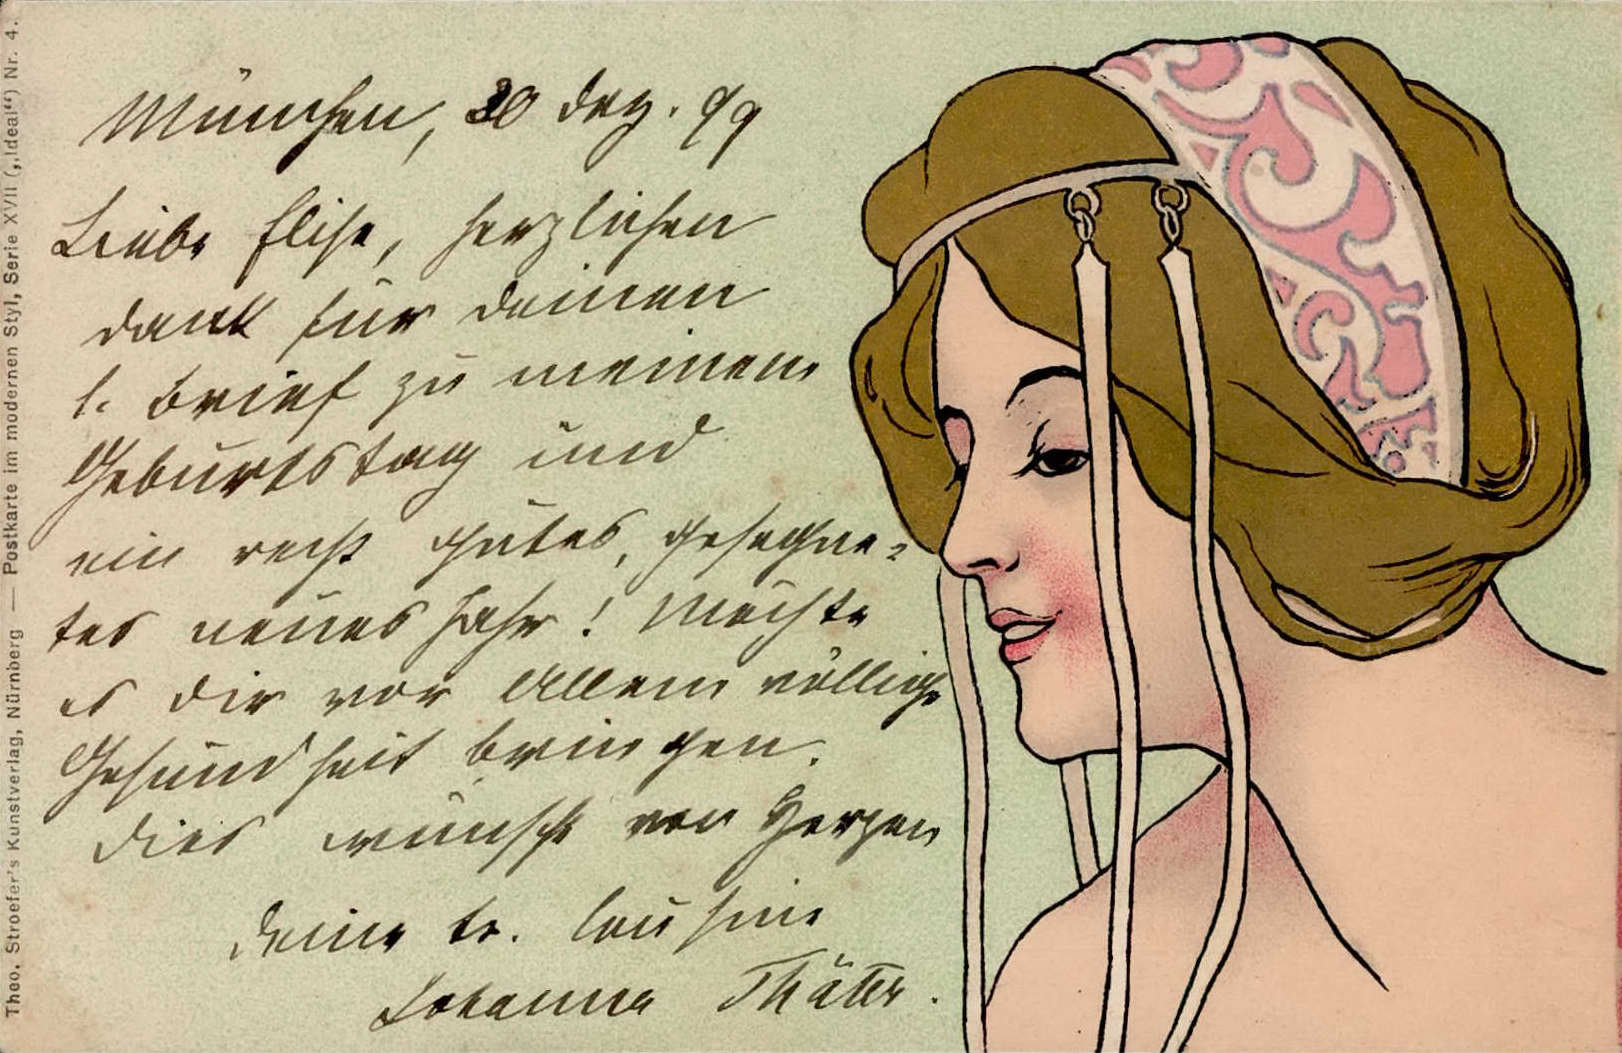 München, 30 Dez. 99
Liebe Elise, herzlichen
Dank für Deinen
l. Brief zu meinem
Geburtstag und
ein recht gutes, gesegne-
tes neues Jahr! Möchte
es Dir vor Allem völlige
Gesundheit bringen.
Dies wünscht von Herzen
Deine tr. Cousine
Johanna Thäter.
Theo. Stroefer's Kunstverlag, Nürnberg — Postkarte im modernen Styl, Serie XVII („Ideal“) Nr. 4.